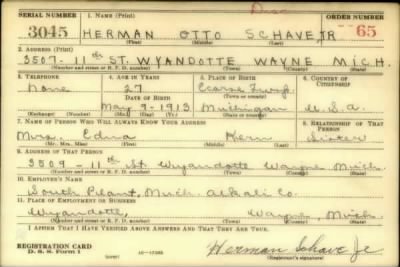 Disc
SERIAL NUMBER 1. NAME (Print) ORDER NUMBER
3045 HERMAN OTTO SCHAVE JR 65
(First) (Middle) (Last)
2. ADDRESS (Print)
3507-11th ST. WYANDOTTE WAYNE MICH.
(Number and street or R. F. D. number) (Town) (County) (State)
3. TELEPHONE 4. AGE IN YEARS 5. PLACE OF BIRTH 6. COUNTRY OF CITIZENSHIP
None 27 Ecorse Twp.
DATE OF BIRTH (Town or county)
May-9-1913 Michigan U.S.A.
(Exchange) (Number) (Mo.) (Day) (Yr.) (State or country)
7. NAME OF PERSON WHO WILL ALWAYS KNOW YOUR ADDRESS 8. RELATIONSHIP OF THAT PERSON
Mrs. Edna Kern Sister
(Mr., Mrs., Miss) (First) (Middle) (Last)
9. ADDRESS OF THAT PERSON
3509 11th St. Wyandotte Wayne Mich.
(Number and street or R. F. D. number) (Town) (County) (State)
10. EMPLOYER'S NAME
South Plant, Mich. Alkali Co.
11. PLACE OF EMPLOYMENT OR BUSINESS
Wyandotte, Wayne, Mich.
(Number and street or R. F. D. number) (Town) (County) (State)
I AFFIRM THAT I HAVE VERIFIED ABOVE ANSWERS AND THAT THEY ARE TRUE.
REGISTRATION CARD
D. S. S. Form 1
Herman Schave Jr
(Registrant's signature)